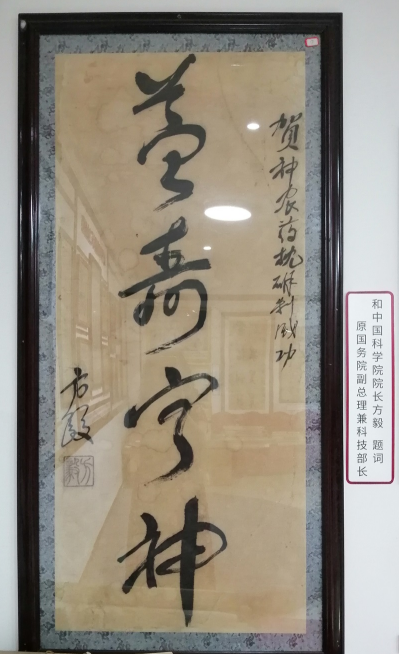 贺神农药枕研制成功
益寿宁神
方毅
原国务院副总理兼科技部长
和中国科学院院长方毅 题词